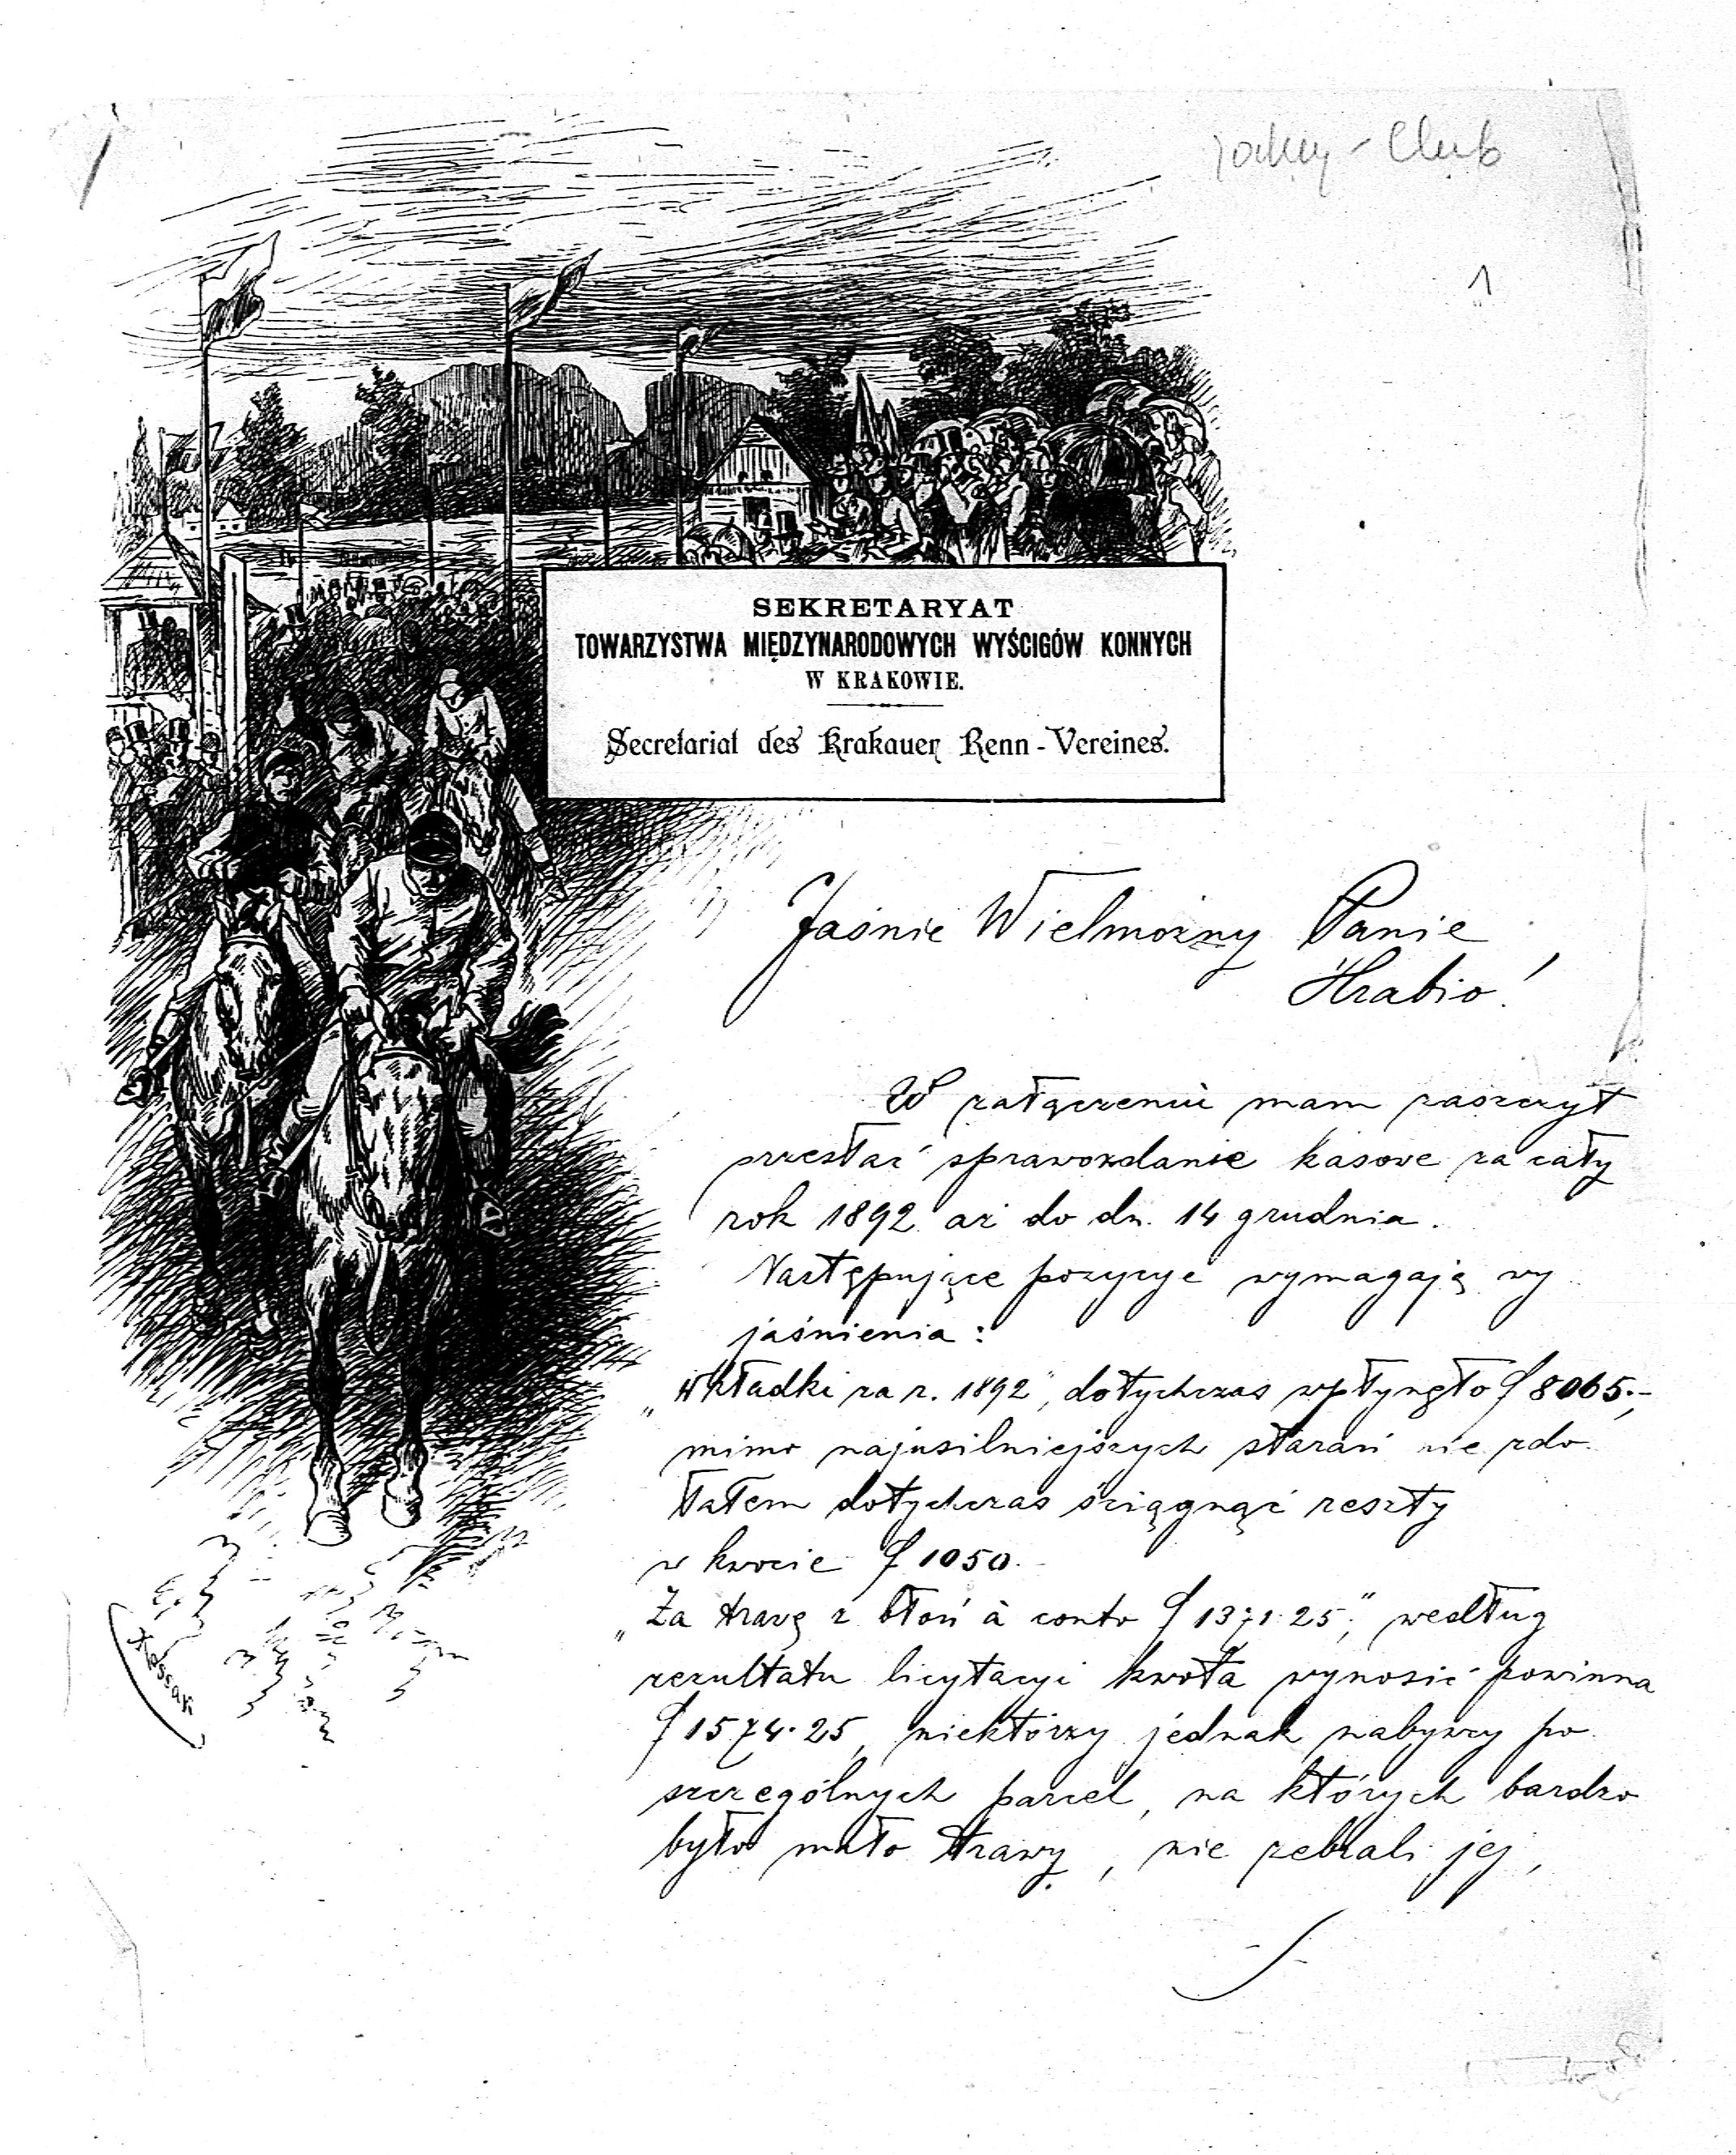 Jokey - Club
1
SEKRETARYAT
TOWARZYSTWA MIĘDZYNARODOWYCH WYŚCIGÓW KONNYCH
W KRAKOWIE.
Secretariat des Krakauer Renn-Vereines.
Jaśnie Wielmożny Panie
Hrabio!
W załączeniu mam zaszczyt
przesłać sprawozdanie kasowe za cały
rok 1892 aż do dn. 14 grudnia.
Następujące pozycye wymagają wy
jaśnienia:
„Wkładki za r. 1892", dotychczas wpłynęło f 8065.-,
mimo najusilniejszych starań nie zdo
łałem dotychczas ściągnąć reszty
w kwocie f 1050.-
„Za trawę z błoń à conto f 1371.25;" według
rezultatu licytacyi kwota wynosić powinna
f 1574.25, niektórzy jednak nabywcy po
szczególnych parcel, na których bardzo
było mało trawy, nie zebrali jej,
Kossak